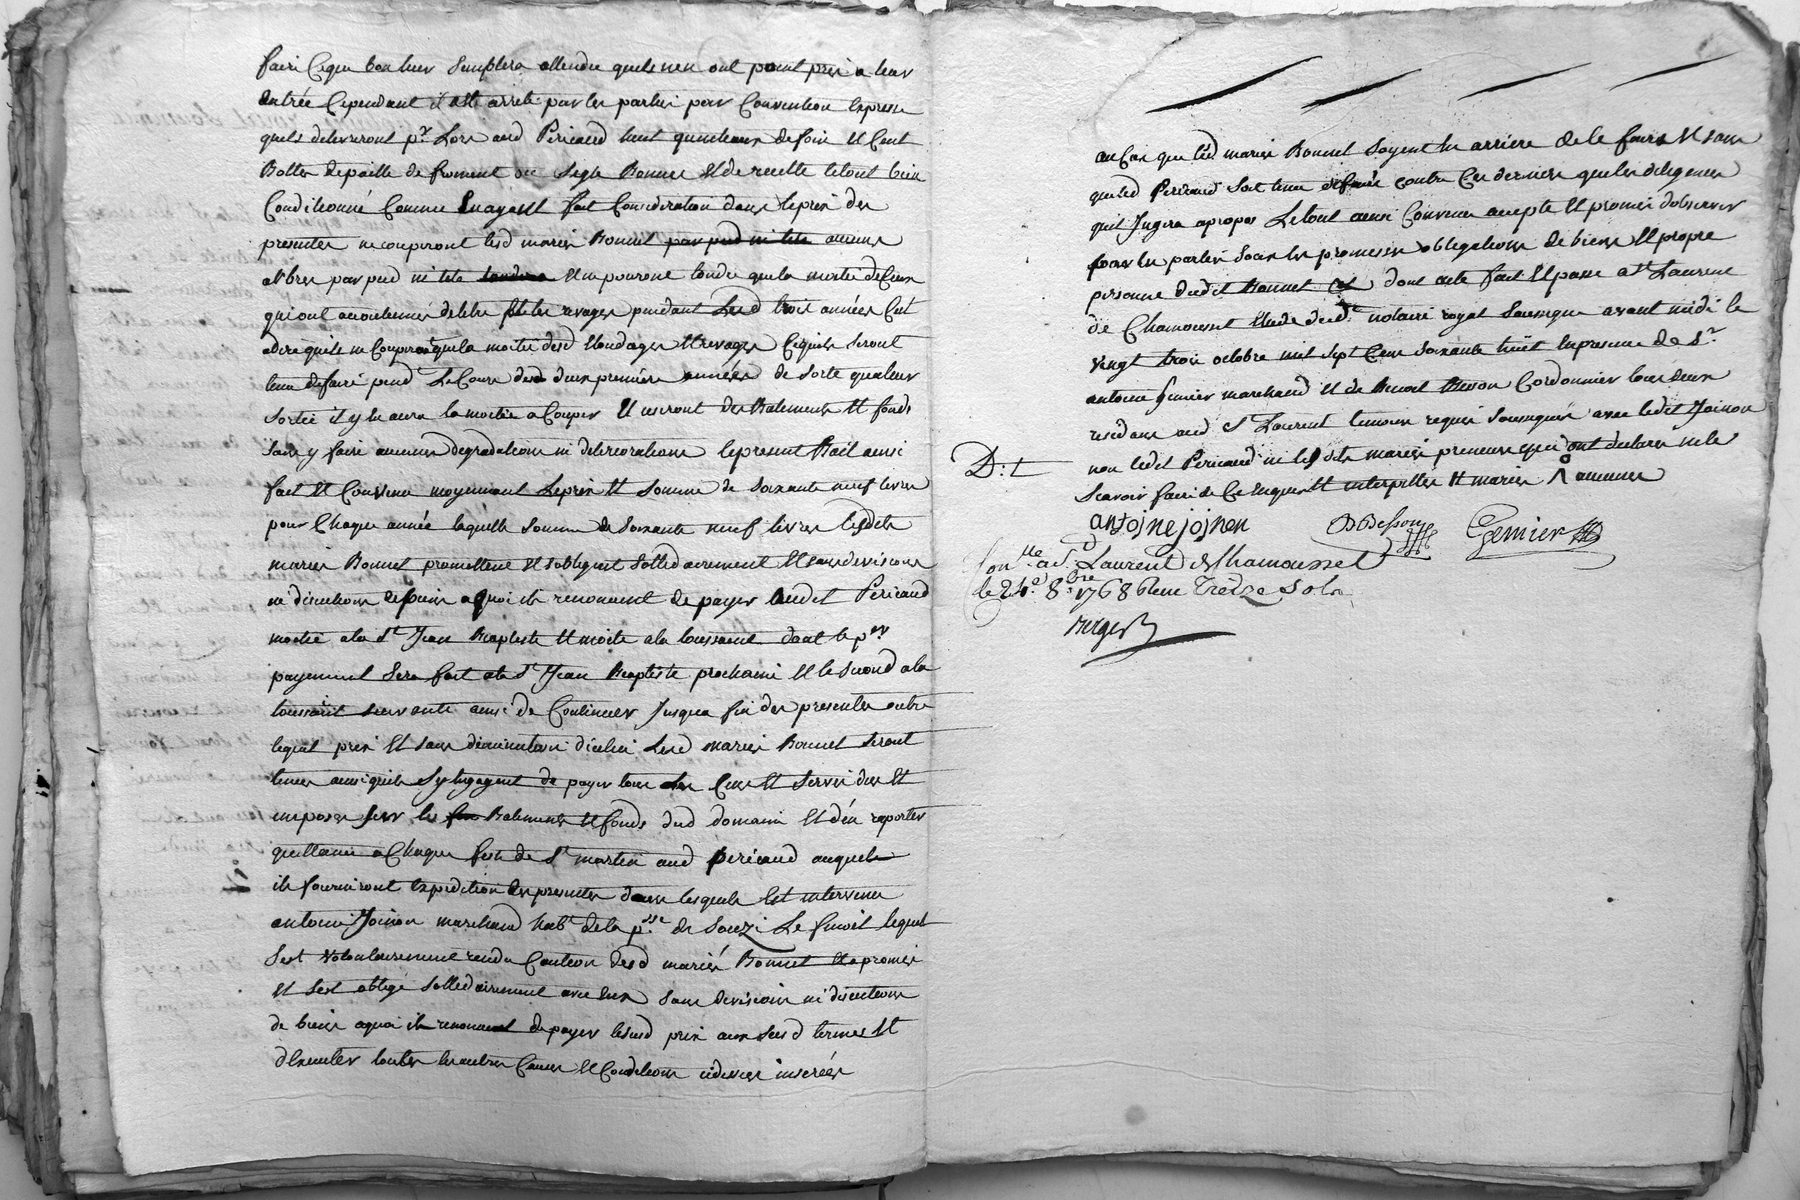 faire ceque bon leur semblera attendu quils nen ont point pris a leur
entrée Cependant il est arreté par les parties par Convention Expresse
quils delivreront pr. Lors aud Pericaud huit quinteaux de foin Et Cent
Bottes depaille de froment ou segle Bonnes Et de recette letout bien
Conditionné Comme Enayant fait Consideration dans leprix des
presentes ne couperont lesd mariés Bonnet par pied ni tete aucuns
arbres par pied ni tete Et ne pouront tondre que la moitié de Ceux
qui ont accoutumé detre Et les revages pendant Lesd trois années Cest
adire quils ne Couperont que la moitié desd Etondages Et revages Cequils seront
tenu defaire pend. Le Cours desd deux premières années de sorte qualeur
sortie il y En aura la moitié a Couper Et useront des Batiments Et fonds
sans y faire aucunes degradations ni deteriorations lepresent Bail ainsi
fait Et Convenu moyennant Leprix Et somme de soixante neuf livres
pour Chaque année laquelle somme de soixante neuf livres lesdits
mariés Bonnet promettent Et sobligent sollidairement Et sans division
ni discution de biens aquoi ils renoncent de payer audit Pericaud
moitié ala St Jean Baptiste Et moitié ala toussaint dont le per
payement sera fait ala St Jean Baptiste prochaine Et le second ala
toussaint suivante ainsi de Continuer Jusqua fin des presentes outre
lequel prix Et sans diminution dicelui Lesd mariés Bonnet seront
tenus ainsi quils sy Engagent de payer tous les Cens Et servis dus Et
imposés sur les Batiments Et fonds dud domaine Et den raporter
quittance a Chaque feste de St martin aud pericaud auquel
ils fourniront Expedition des presentes dans lesquels Est intervenu
antoine Joinon marchand habt de la psse de Souzi Le lequel
sest volontairement rendu Caution desd mariés Bonnet Et a promis
Et sest obligé sollidairement avec Eux sans division ni discution
de biens aquoi ils renoncent de payer lesusd prix aux susd termes Et
dExecuter toutes les autres Causes Et Conditions cidevant inserées
au Cas que lesd mariés Bonnet soyent En arriere de le faire Et sans
que led Pericaud soit tenu defaire contre Ces derniers que les diligences
quil Jugera apropos Letout ainsi Convenu accepté Et promis dobserver
par les parties sous les promesses obligations de biens Et propre
personne dudit Bonnet dont acte fait Et passé a St Laurent
de Chamousset Etude dudt notaire royal soussigné avant midi le
vingt trois octobre mil sept Cens soixante huit En presence de Sr
antoine Gemier marchand Et de Benoit Besson Cordonnier tous deux
residans aud St Laurent temoins requis soussignés avec ledit Joinon
non ledit Pericaud ni lesdits mariés preneurs qui ont declaré ne le
D: t
scavoir faire de Ce Enquis Et interpellés
antoine joinon
B Besson
Gemier
Con.lle a St. Laurent de Chamousset
le 24e. 8.bre 1768 Reçu Treize sols
Berger